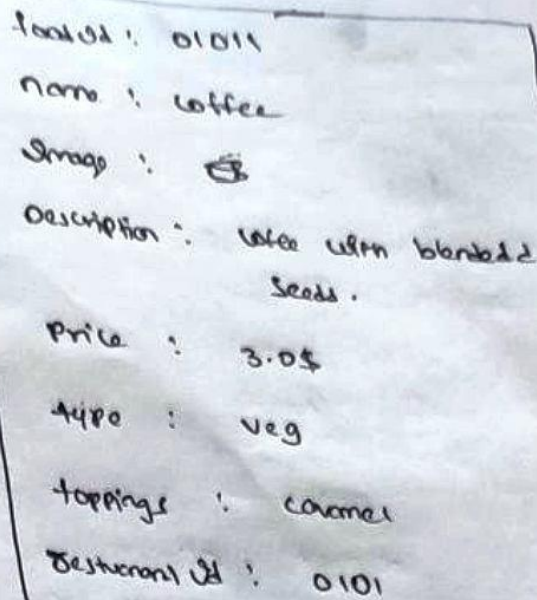 foodId : 01011
name : coffee
Image :
Description : cofee with blended
seeds.
Price : 3.0$
type : veg
toppings : caramel
restuarant Id : 0101